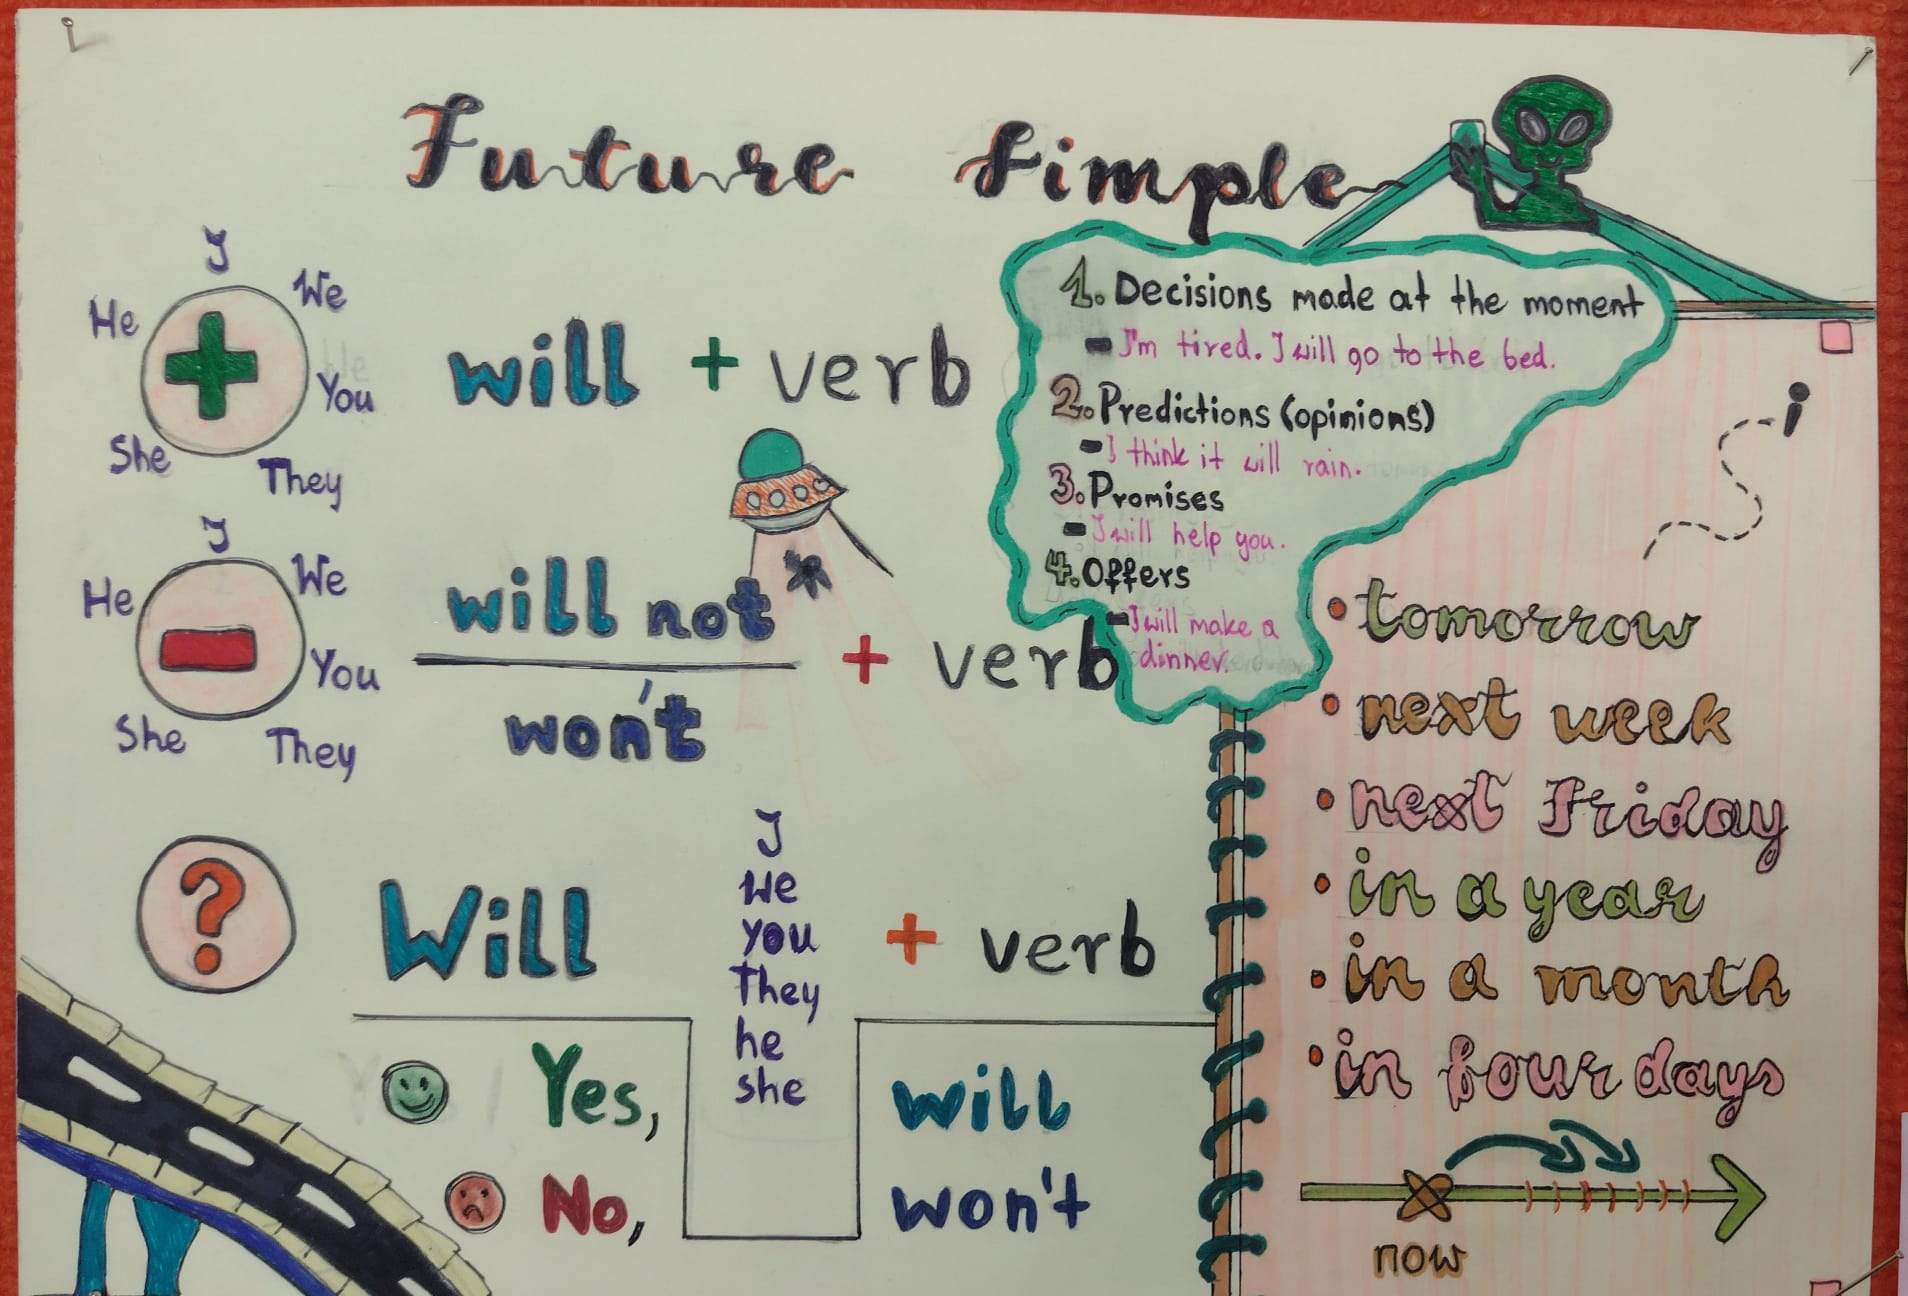 Future Simple
I
He
We
You
She
They
will + verb
1. Decisions made at the moment
- I'm tired. I will go to the bed.
2. Predictions (opinions)
- I think it will rain.
3. Promises
- I will help you.
4. Offers
- I will make a
dinner.
I
He
We
You
She
They
will not
won't
+ verb
?
Will
I
We
you
They
he
she
+ verb
Yes,
will
No,
won't
• tomorrow
• next week
• next Friday
• in a year
• in a month
• in four days
now